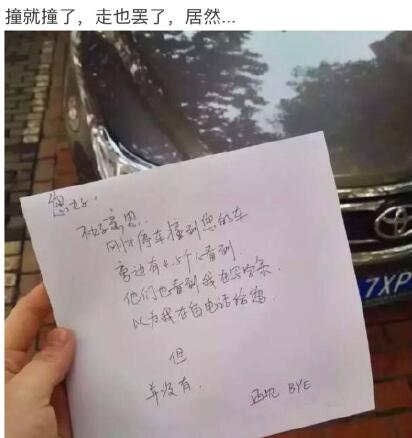 撞就撞了，走也罢了，居然...
您好！
不好意思..
刚才停车撞到您的车
旁边有4.5个人看到
他们也看到我在写字条.
以为我在留电话给您
但
并没有.
BYE
TOYOTA
7XP